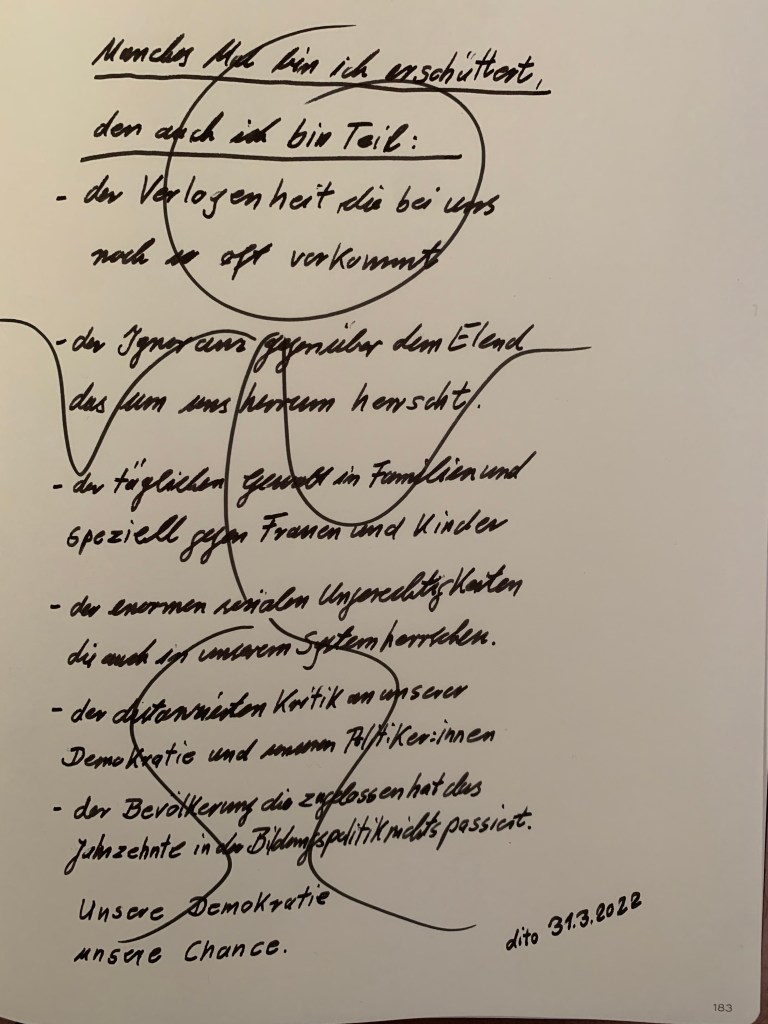 Manches Mal bin ich erschüttert,
den auch ich bin Teil:
- der Verlogenheit die bei uns
noch so oft vorkommt
- der Ignoranz gegenüber dem Elend
das um uns herrum herrscht.
- der täglichen Gewalt in Familien und
speziell gegen Frauen und Kinder
- der enormen sozialen Ungerechtigkeiten
die auch in unserem System herrschen.
- der distanzierten Kritik an unserer
Demokratie und unseren Politiker:innen
- der Bevölkerung die zugelassen hat das
Jahrzehnte in der Bildungspolitik nichts passiert.
Unsere Demokratie
unsere Chance.
dito 31.3.2022
183